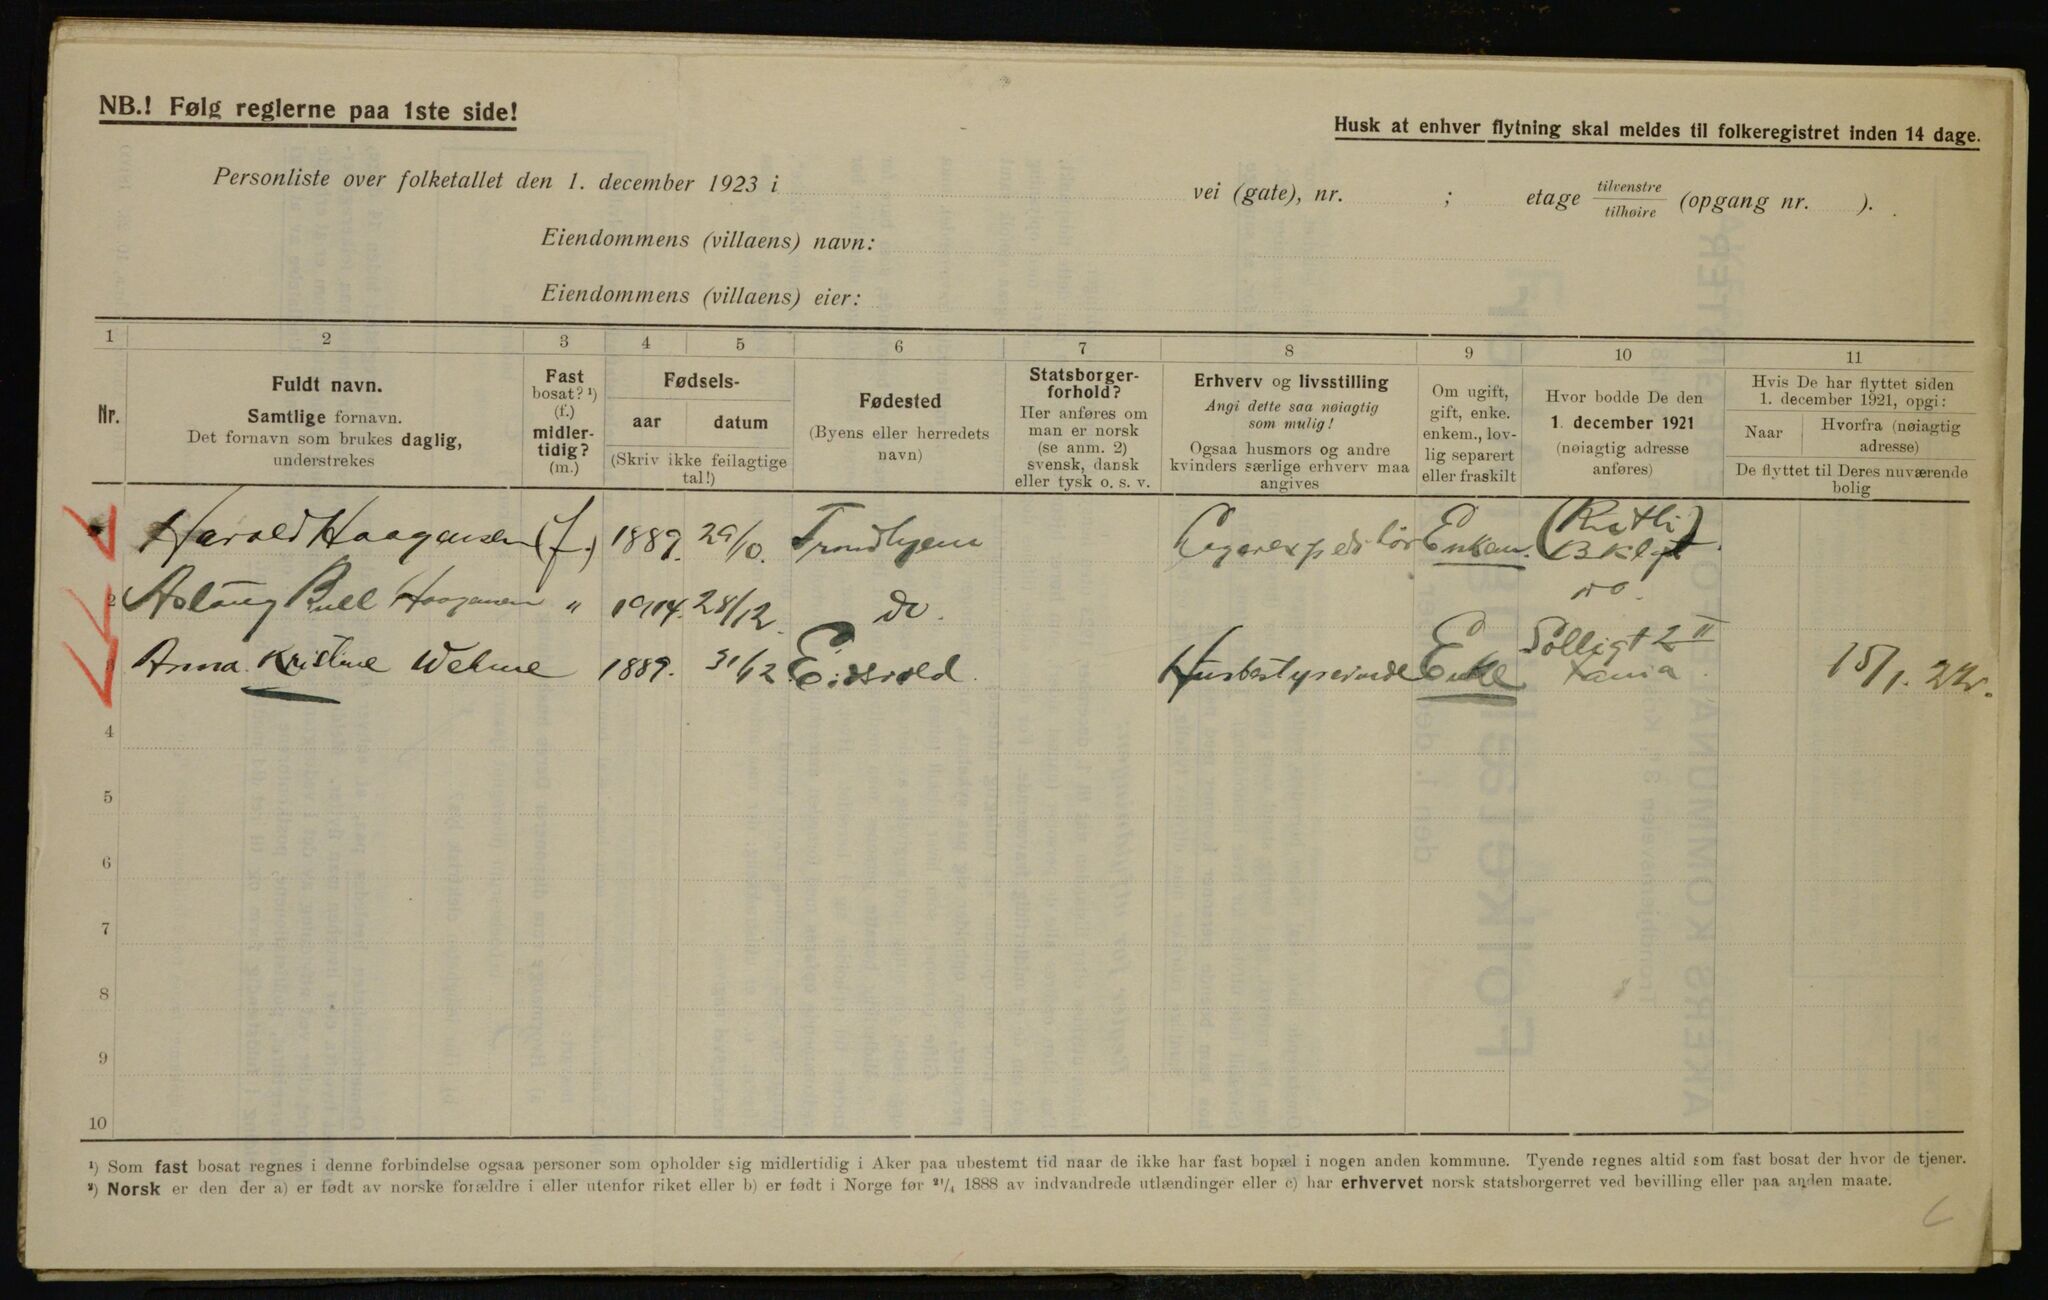 NB.! Følg reglerne paa 1ste side!
Husk at enhver flytning skal meldes til folkeregistret inden 14 dage.
Personliste over folketallet den 1. december 1923 i vei (gate), nr. ; etage tilvenstre/tilhøire (opgang nr. ).
Eiendommens (villaens) navn:
Eiendommens (villaens) eier:
1 2 3 4 5 6 7 8 9 10 11
Nr.
Fuldt navn.
Samtlige fornavn.
Det fornavn som brukes daglig,
understrekes
Fast
bosat? ¹)
(f.)
midler-
tidig?
(m.)
Fødsels-
aar datum
(Skriv ikke feilagtige
tal!)
Fødested
(Byens eller herredets
navn)
Statsborger-
forhold?
Her anføres om
man er norsk
(se anm. 2)
svensk, dansk
eller tysk o. s. v.
Erhverv og livsstilling
Angi dette saa nøiagtig
som mulig!
Ogsaa husmors og andre
kvinders særlige erhverv maa
angives
Om ugift,
gift, enke.
enkem., lov-
lig separert
eller fraskilt
Hvor bodde De den
1. december 1921
(nøiagtig adresse
anføres)
Hvis De har flyttet siden
1. december 1921, opgi:
Naar
Hvorfra (nøiagtig
adresse)
De flyttet til Deres nuværende
bolig
Harold Haagensen (f.) 1889. 29/10. Trondhjem Lagerexpeditør Enkem.
2 Aslaug Bull Haagensen " 1914. 28/12. do. do.
3 Anna Kristine Welme 1889. 31/12 Eidsvold Husbestyrerinde Enke Solligt 2 II 15/1. 22.
4
5
6
7
8
9
10
¹) Som fast bosat regnes i denne forbindelse ogsaa personer som opholder sig midlertidig i Aker paa ubestemt tid naar de ikke har fast bopæl i nogen anden kommune. Tyende regnes altid som fast bosat der hvor de tjener.
²) Norsk er den der a) er født av norske forældre i eller utenfor riket eller b) er født i Norge før 21/4 1888 av indvandrede utlændinger eller c) har erhvervet norsk statsborgerret ved bevilling eller paa anden maate.